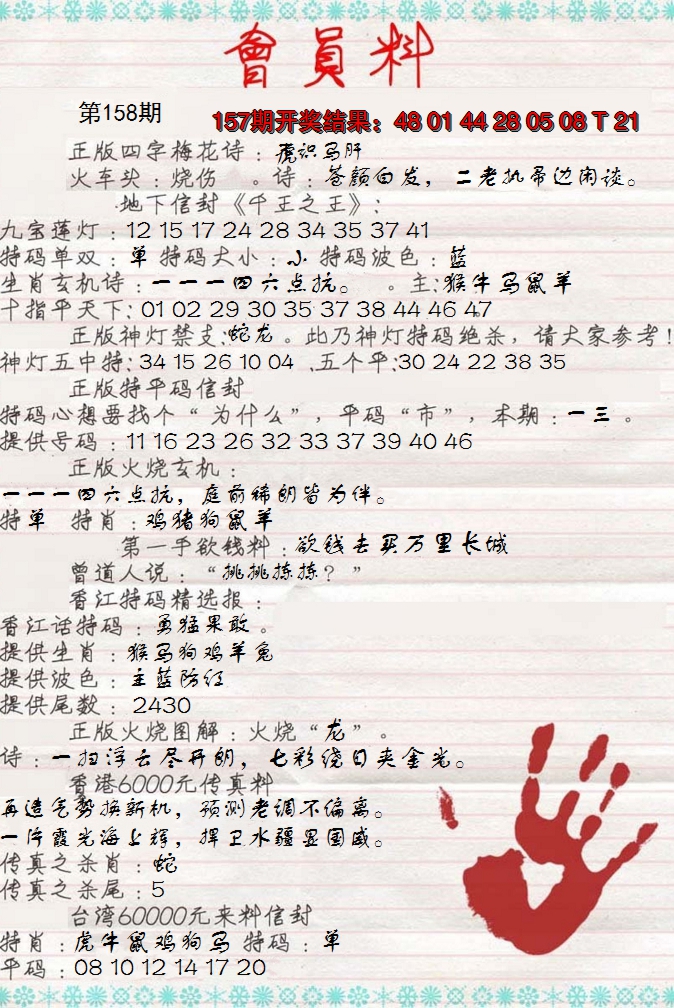 會員料
第158期
157期开奖结果：48 01 44 28 05 08 T 21
正版四字梅花诗：虎识马肝
火车头：烧伤 。诗：苍颜白发，二老执帚边闲谈。
地下信封《千王之王》：
九宝莲灯：12 15 17 24 28 34 35 37 41
特码单双：单 特码大小：小 特码波色：蓝
生肖玄机诗：一一一四六点抗。 。主：猴牛马鼠羊
十指平天下：01 02 29 30 35 37 38 44 46 47
正版神灯禁支：蛇龙。此乃神灯特码绝杀，请大家参考！
神灯五中特：34 15 26 10 04 、五个平：30 24 22 38 35
正版特平码信封
特码心想要找个“为什么”，平码“市”，本期：一三。
提供号码：11 16 23 26 32 33 37 39 40 46
正版火烧玄机：
一一一四六点抗，庭前稀朗皆为伴。
特单 特肖：鸡猪狗鼠羊
第一手欲钱料：欲钱去买万里长城
曾道人说：“挑挑拣拣？”
香江特码精选报：
香江话特码：勇猛果敢。
提供生肖：猴马狗鸡羊兔
提供波色：主蓝防红
提供尾数：2430
正版火烧图解：火烧“龙”。
诗：一扫浮云尽开朗，七彩绕日夹金光。
香港6000元传真料
再造气势换新机，预测老调不偏离。
一片霞光海上辉，捍卫水疆显国威。
传真之杀肖：蛇
传真之杀尾：5
台湾60000元来料信封
特肖：虎牛鼠鸡狗马 特码：单
平码：08 10 12 14 17 20